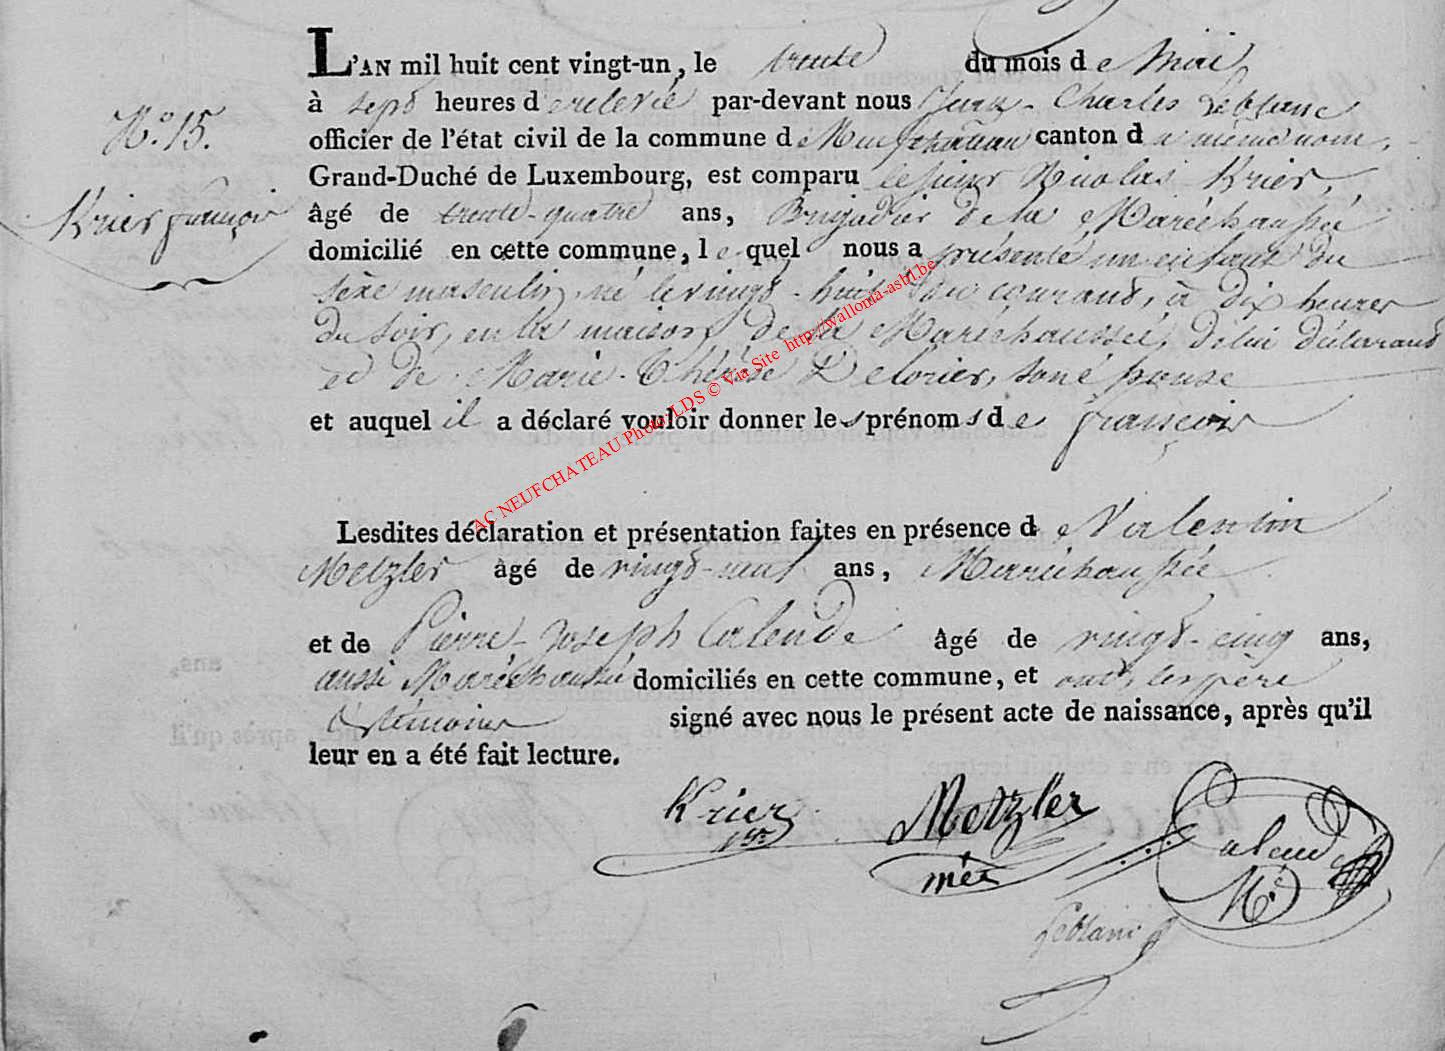 L'AN mil huit cent vingt-un, le trente du mois de Mai
à sept heures de relevée par-devant nous Jean-Charles Leblanc
officier de l'état civil de la commune de Neufchateau canton du même nom,
Grand-Duché de Luxembourg, est comparu le sieur Nicolas Krier,
âgé de trente-quatre ans, Brigadier de la Maréchaussée
domicilié en cette commune, lequel nous a présenté un enfant du
sèxe masculin, né le vingt-huit du courant, à dix heures
du soir, en la maison de la Maréchaussée, de lui déclarant
et de Marie-Thérèse Delorier, son épouse
et auquel il a déclaré vouloir donner les prénoms de françois
Lesdites déclaration et présentation faites en présence de Valentin
Metzler âgé de vingt-neuf ans, Maréchaussée
et de Pierre-Joseph Calende âgé de vingt-cinq ans,
aussi Maréchaussée domiciliés en cette commune, et ont, les père
& témoins signé avec nous le présent acte de naissance, après qu'il
leur en a été fait lecture.
N.º 15.
Krier françois
AC NEUFCHATEAU Photo LDS © Via Site http://wallonia-asbl.be
Krier
Metzler
Calende
Leblanc